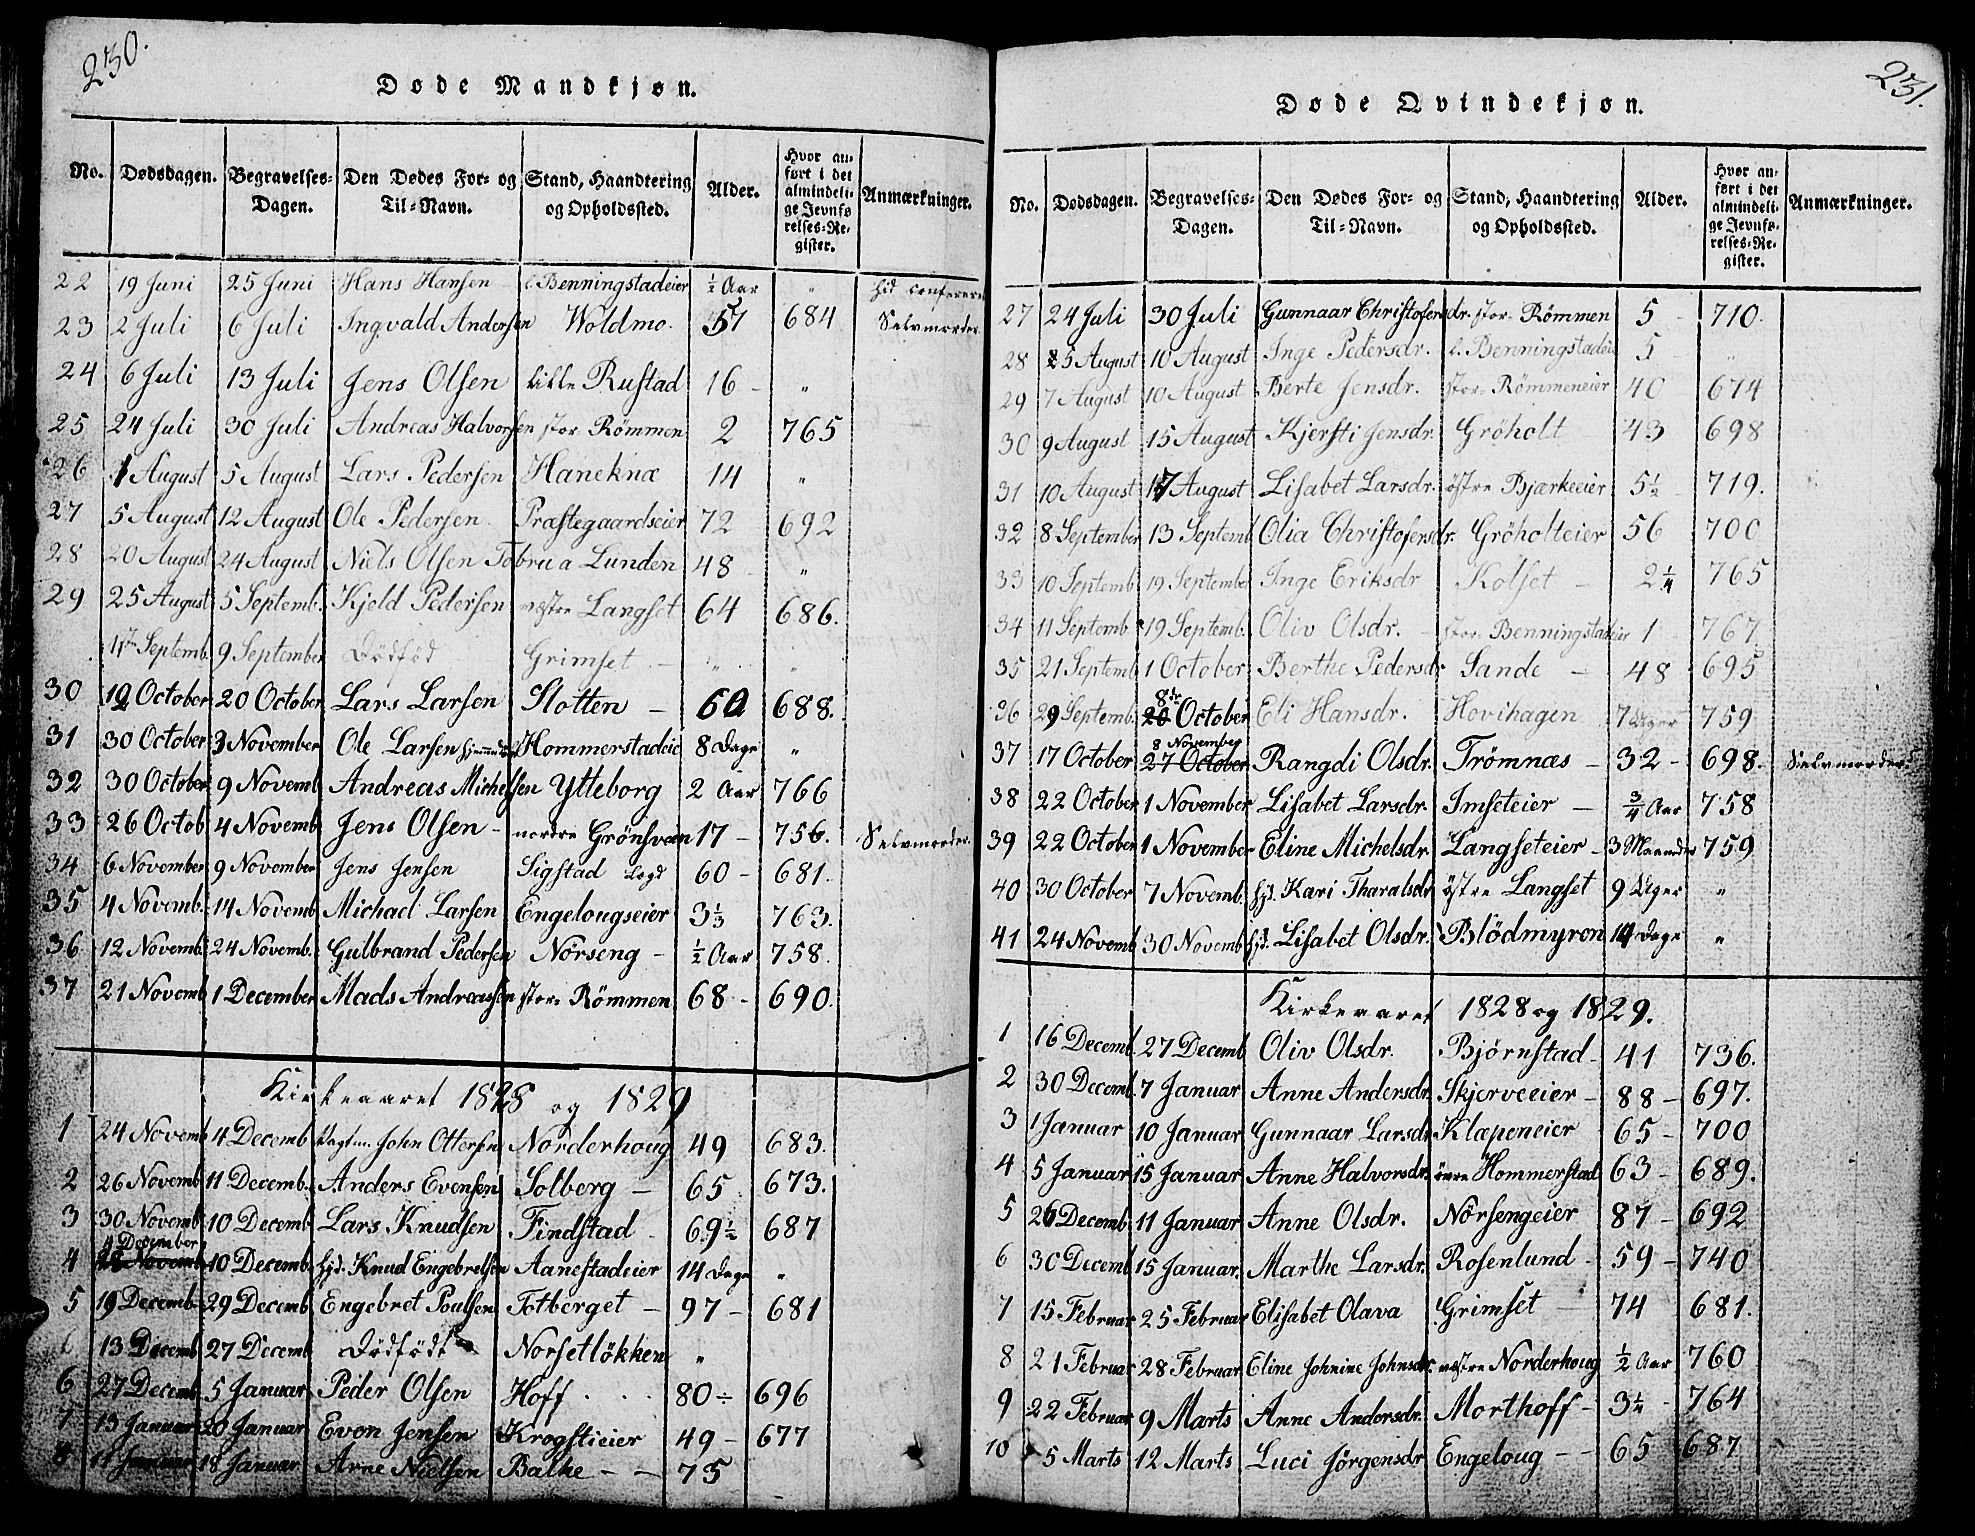 230.
Døde Mandkjøn.
No. Dødsdagen. Begravelses-Dagen. Den Dødes For- og Til-Navn. Stand, Haandtering og Opholdssted. Alder. Hvor anført i det almindelige Jevnførelses-Register. Anmærkninger.
22 19 Juni 25 Juni Hans Hansen l. Benningstadeier ½ Aar "
23 2 Juli 6 Juli Ingvald Andersen Woldmo. 57 684 Selvmorder.
24 6 Juli 13 Juli Jens Olsen Lille Rustad 16 - "
25 24 Juli 30 Juli Andreas Halvorsen store Römmen 2 765
26 1 August 5 August Lars Pedersen Haneknæ 14 "
27 5 August 12 August Ole Pedersen Præstegaardseier 72 692
28 20 August 24 August Niels Olsen Tobru a Lunden 48 - "
29 25 August 5 Septemb. Kjeld Pedersen vestre Langset 64 686.
1ste Septemb. 9 September Dödfød Grimset - " "
30 12 October 20 October Lars Larsen Slotten - 60 688.
31 30 October 3 November Ole Larsen Hommerstadeie 8 Dage "
32 30 October 9 Novemb. Andreas Michelsen Ytteborg 2 Aar 766
33 26 Octob 4 Novemb. Jens Olsen - nordre Grönsveen 17 - 756. Selvmorder.
34 6 November 9 November Jens Jensen Sigstad Legd 60 - 681.
35 4 Novemb. 14 Novemb. Michael Larsen Engelougseier 3⅓ 763.
36 12 Novemb. 24 Novemb. Gulbrand Pedersen Nörseng - ½ Aar 758.
37 21 Novemb 1 December Mads Andreassen store Römmen 68 - 690.
Kirkeaaret 1828 og 1829
1 24 Novemb 4 Decemb John Ottersen Norderhoug 49 683.
2 26 Novemb 11 Decemb. Anders Evensen Solberg - 65 673.
3 30 Novemb 10 Decemb Lars Knudsen Findstad 69½ 687
4 4 December 10 Decemb. hjd. Knud Engebretsen Aanestadeier 14 Dage "
5 19 Decemb. 29 Decemb Engebret Poulsen Totberget - 97 - 681
13 Decemb 27 Decemb Dödfödt Norsetlökken "
6 27 Decemb 5 Januar Peder Olsen Hoff 80 ÷ 696
7 13 Januar 20 Januar Even Jensen Krogstieier 49 - 677
8 11 Januar 18 Januar Arne Nielsen Balke - - 75
231.
Døde Qvindekjøn.
No. Dødsdagen. Begravelses-Dagen. Den Dødes For- og Til-Navn. Stand, Haandtering og Opholdssted. Alder. Hvor anført i det almindelige Jevnførelses-Register. Anmærkninger.
27 24 Juli 30 Juli Gunnaar Christofersdr. store Römmen 5 - 710.
28 5 August 10 August Inge Pedersdr. l. Benningstadeie 5 "
29 7 August 10 August Berte Jensdr. store Römmeneier 40 674
30 9 August 15 August Kjersti Jensdr. Gröholt 43 698
31 10 August 17 August Lisabet Larsdr. östre Bjærkeeier 5½ 719.
32 8 September 13 Septemb. Olia Christofersdr. Gröholteier 56 700
33 10 Septemb. 19 September Inge Eriksdr Kolset - 2¼ 765
34 11 Septemb. 19 Septemb. Oliv Olsdr. - store Benningstadeier 1 767
35 21 Septemb 1 October Berthe Pedersdr Sande - 48 695
36 29 Septemb. 8de October Eli Hansdr. Hovihagen 7 Uger 759
37 17 October 8 November 27 October Rangdi Olsdr. Trömnæs - 32 - 698. Selvmorder.
38 22 October 1 November Lisabet Larsdr. Imseteier - ¾ Aar 758
39 22 October 1 November Eline Michelsdr. Langseteier - 3 Maaneder 759
40 30 October 7 Novemb. hjd. Kari Tharalsdr. östre Langset 9 Uger "
41 24 Novemb 30 Novemb hjd. Lisabet Olsdr. Blödmyren 14 Dage "
Kirkeaaret 1828 og 1829.
1 16 Decemb. 27 Decemb Oliv Olsdr. Björnstad - 41 736.
2 30 Decemb. 7 Januar Anne Andersdr. Skjerveeier - 88 - 697.
3 1 Januar 10 Januar Gunnaar Larsdr. Klæpeneier 65 - 700
4 5 Januar 15 Januar Anne Halvorsdr. övre Hommerstad 63 - 689.
5 26 Decemb. 11 Januar Anne Olsdr. Nörsengeier 87 - 692
6 30 Decemb 15 Januar. Marthe Larsdr. Rosenlund - 59 - 740
7 15 Februar 25 Februar Elisabet Olava Grimset - 74 681.
8 21 Februar 28 Februar Eline Johnine Johnsdr. vestre Norderhoug ½ Aar 760
9 22 Februar 9 Marts Anne Andersdr. Morthoff - 3¼ - 764
10 5 Marts 12 Marts Luci Jörgensdr Engeloug - - 65 687